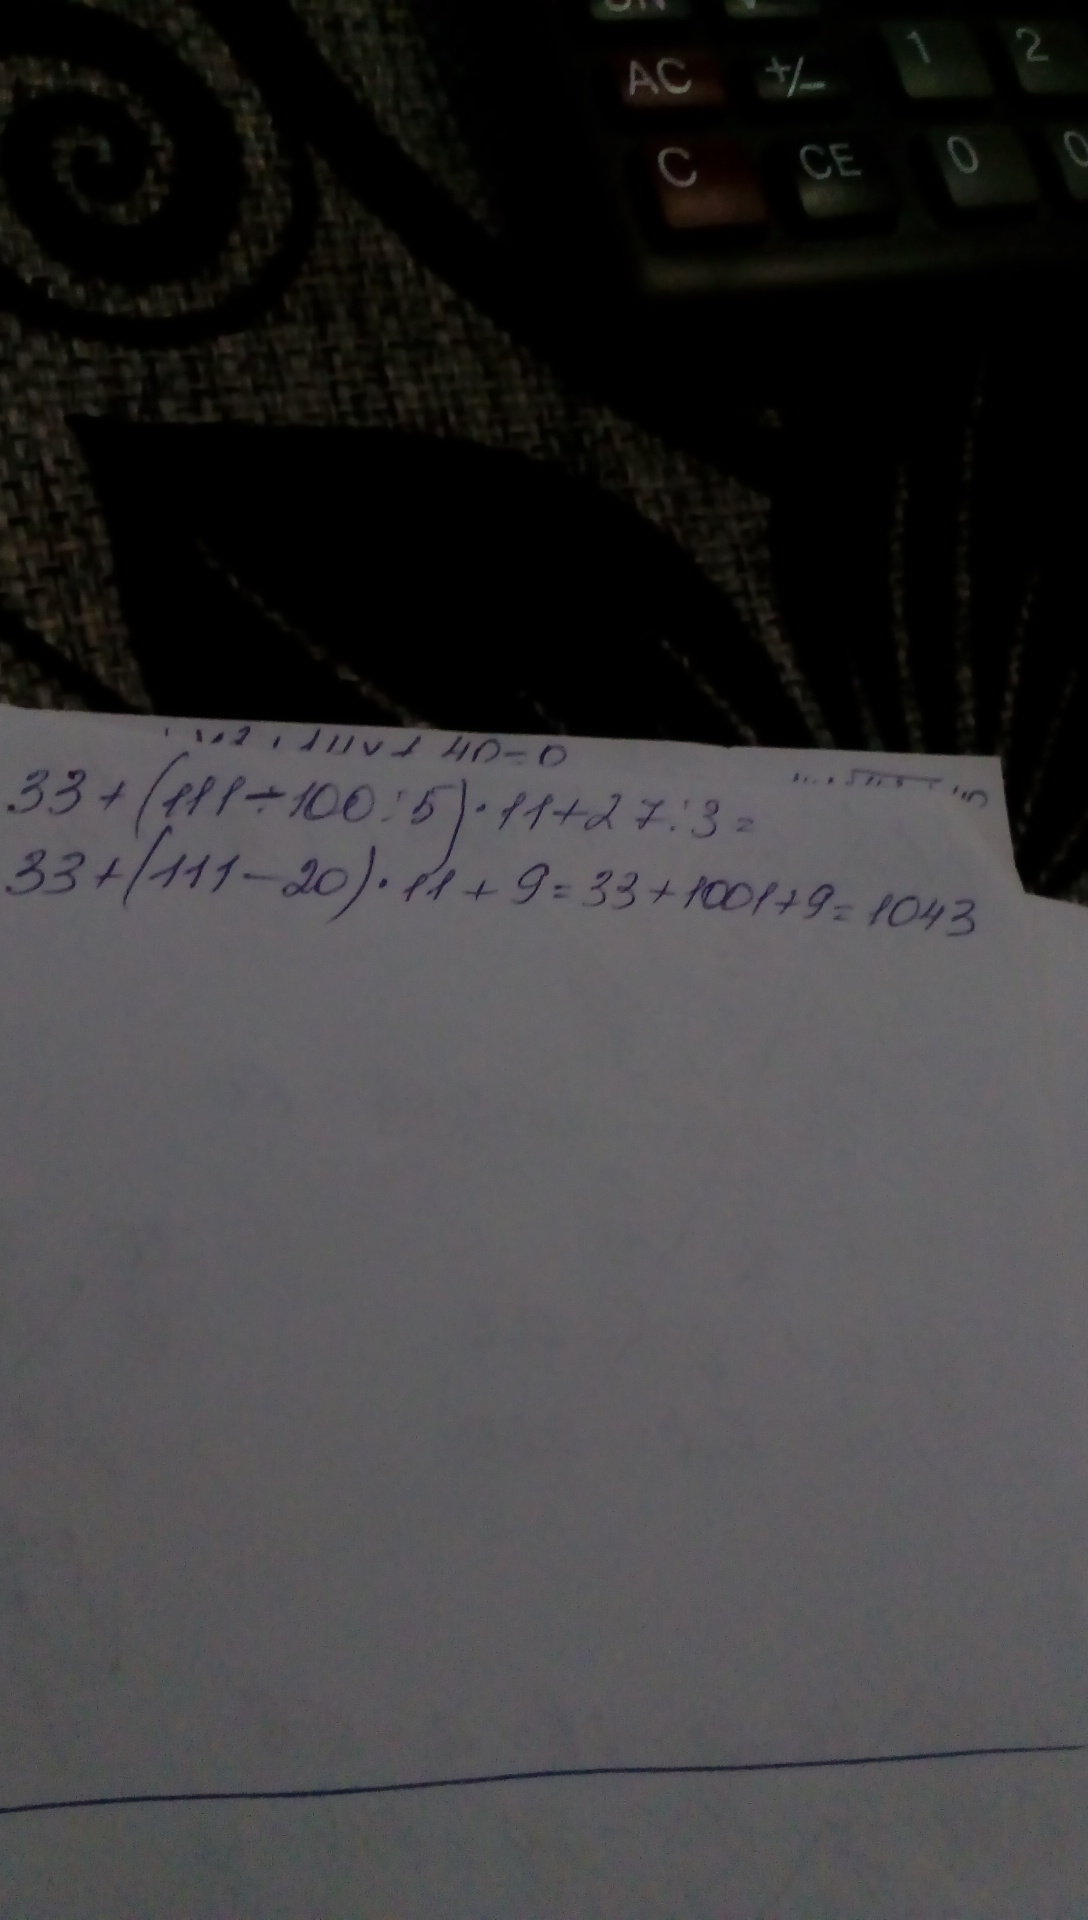 AC +/- 1 2
C CE 0 0
40=0
33+(111÷100:5)·11+27:3=
33+(111-20)·11+9=33+1001+9=1043